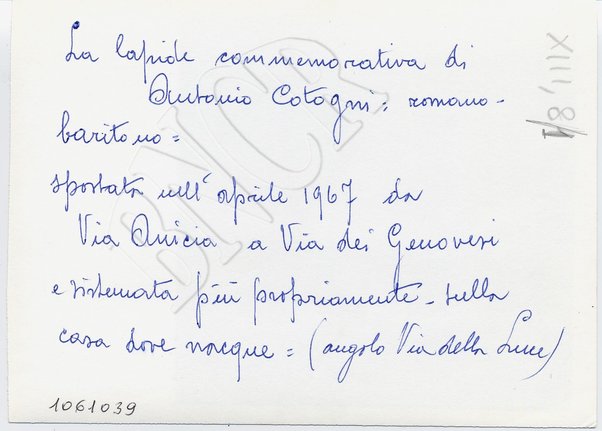 La lapide commemorativa di
Antonio Cotogni: romano-
baritono=
spostata nell'aprile 1967 da
Via Anicia a Via dei Genovesi
e sistemata più propriamente - sulla
casa dove nacque = (angolo Via della Luce)
XIII, 8
1061039
BNCR